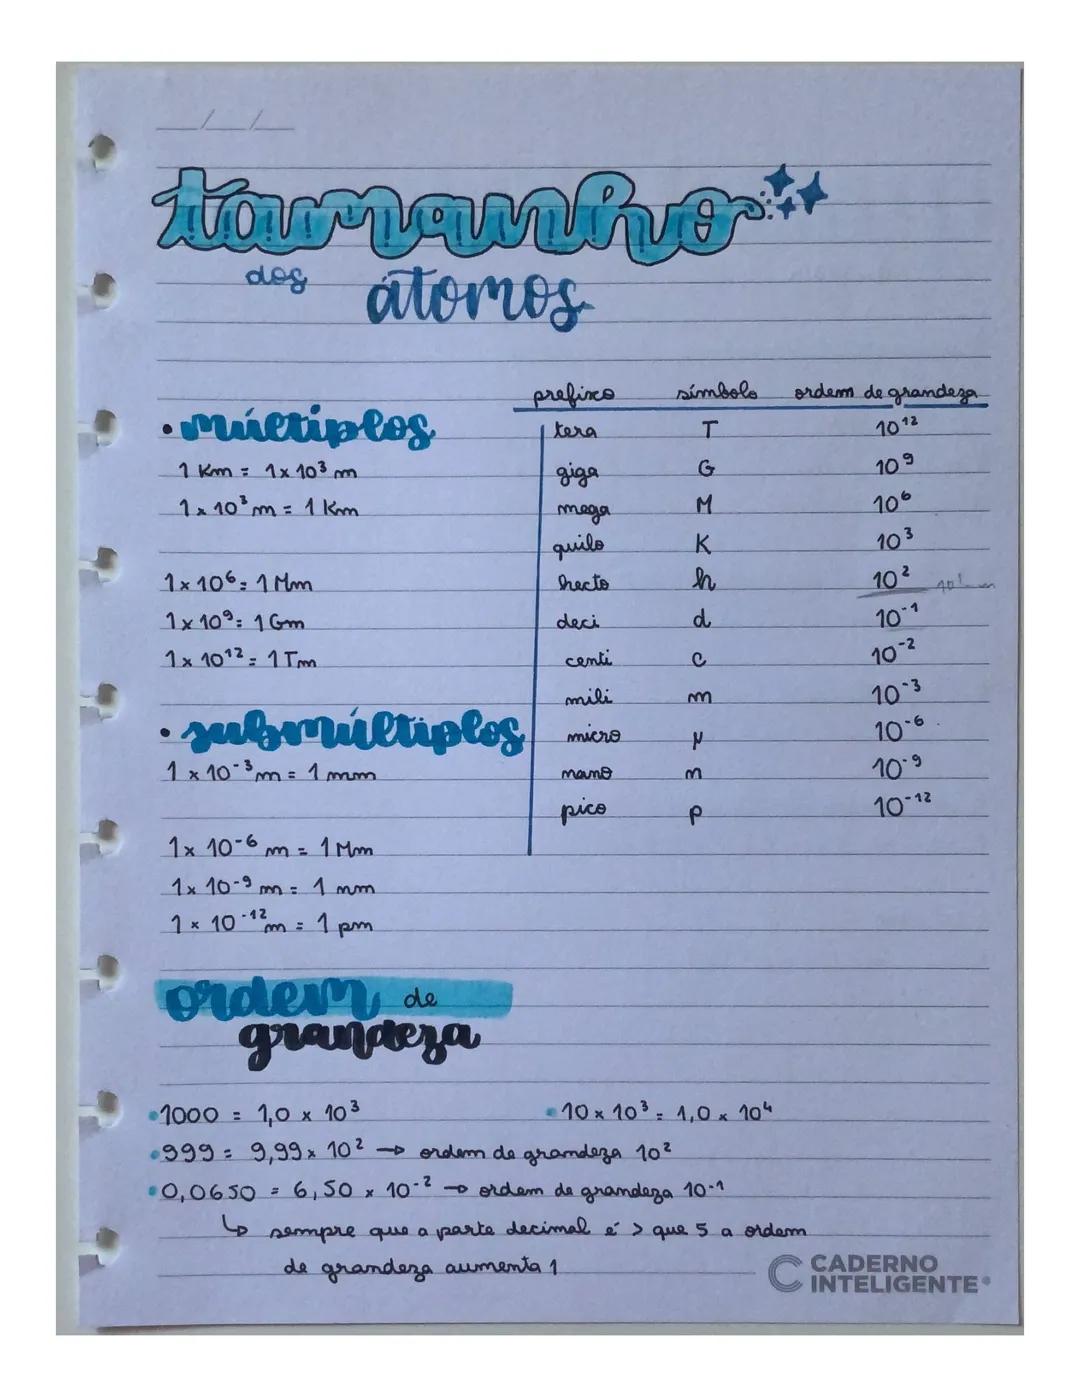 __/__/__
tamanho
dos átomos
• múltiplos
1 Km = 1x 10³ m
1 x 10³ m = 1 Km
1x 10⁶ = 1 Mm
1x 10⁹ = 1 Gm
1x 10¹² = 1 Tm
• submúltiplos
1 x 10⁻³ m = 1 mm
1x 10⁻⁶ m = 1 Mm
1x 10⁻⁹ m = 1 nm
1 x 10⁻¹² m = 1 pm
prefixo símbolo ordem de grandeza
tera T 10¹²
giga G 10⁹
mega M 10⁶
quilo K 10³
hecto h 10²
deci d 10⁻¹
centi c 10⁻²
mili m 10⁻³
micro µ 10⁻⁶
nano n 10⁻⁹
pico p 10⁻¹²
ordem de
grandeza
• 1000 = 1,0 x 10³
• 10 x 10³ = 1,0 x 10⁴
• 999 = 9,99 x 10² → ordem de grandeza 10²
• 0,0650 = 6,50 x 10⁻² → ordem de grandeza 10⁻¹
↳ sempre que a parte decimal é > que 5 a ordem
de grandeza aumenta 1
CADERNO
INTELIGENTE®